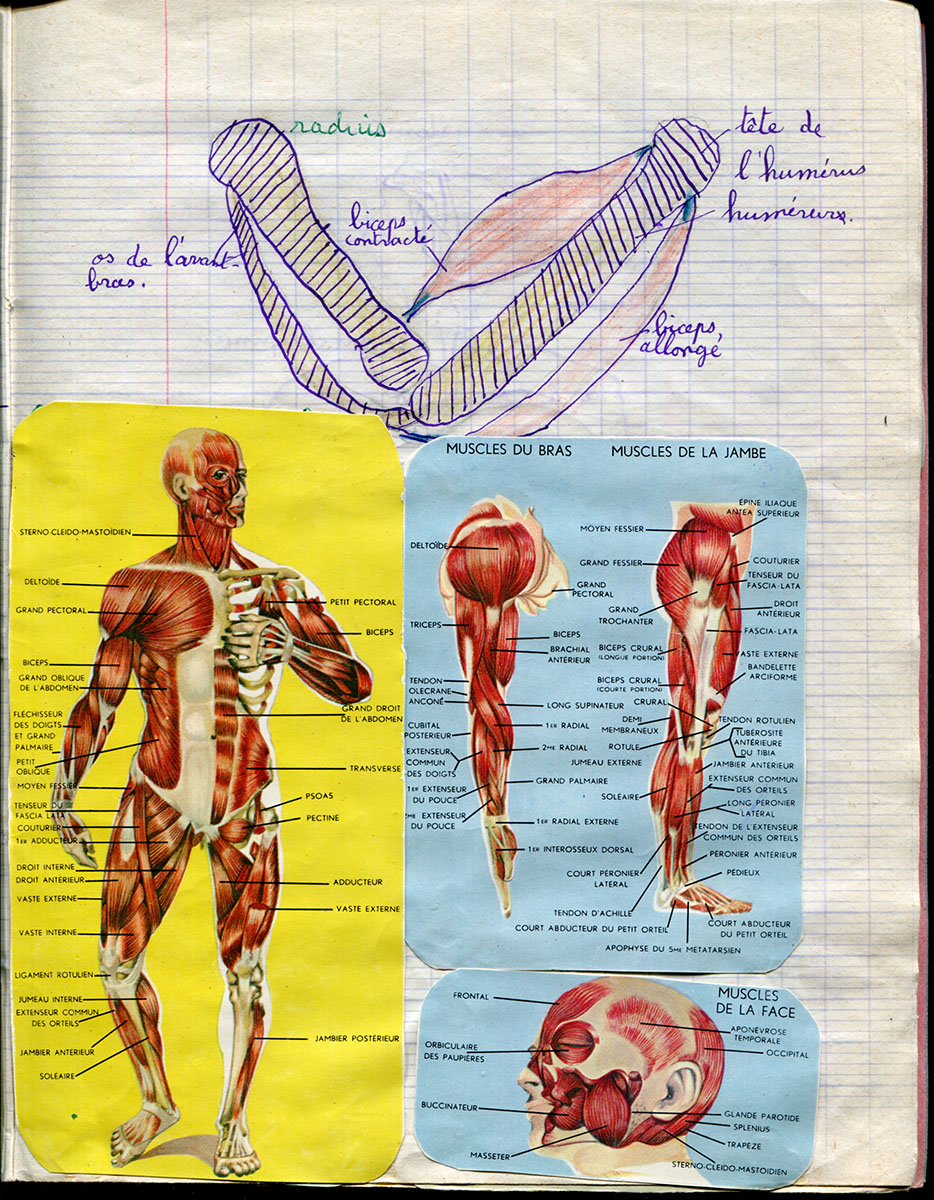 radius
tête de
l'humérus
humérus.
biceps
contracté
os de l'avant-
bras.
biceps,
allongé
STERNO-CLEIDO-MASTOÏDIEN
DELTOÏDE
GRAND PECTORAL
BICEPS
GRAND OBLIQUE
DE L'ABDOMEN
FLÉCHISSEUR
DES DOIGTS
ET GRAND
PALMAIRE
PETIT
OBLIQUE
MOYEN FESSIER
TENSEUR DU
FASCIA LATA
COUTURIER
1ER ADDUCTEUR
DROIT INTERNE
DROIT ANTÉRIEUR
VASTE EXTERNE
VASTE INTERNE
LIGAMENT ROTULIEN
JUMEAU INTERNE
EXTENSEUR COMMUN
DES ORTEILS
JAMBIER ANTÉRIEUR
SOLÉAIRE
PETIT PECTORAL
BICEPS
GRAND DROIT
DE L'ABDOMEN
TRANSVERSE
PSOAS
PECTINÉ
ADDUCTEUR
VASTE EXTERNE
JAMBIER POSTÉRIEUR
MUSCLES DU BRAS
DELTOÏDE
TRICEPS
TENDON
OLECRANE
ANCONÉ
CUBITAL
POSTÉRIEUR
EXTENSEUR
COMMUN
DES DOIGTS
1ER EXTENSEUR
DU POUCE
ME EXTENSEUR
DU POUCE
GRAND
PECTORAL
BICEPS
BRACHIAL
ANTÉRIEUR
LONG SUPINATEUR
1ER RADIAL
2ME RADIAL
GRAND PALMAIRE
1ER RADIAL EXTERNE
1ER INTEROSSEUX DORSAL
MUSCLES DE LA JAMBE
MOYEN FESSIER
GRAND FESSIER
GRAND
TROCHANTER
BICEPS CRURAL
(LONGUE PORTION)
BICEPS CRURAL
(COURTE PORTION)
CRURAL
DEMI
MEMBRANEUX
ROTULE
JUMEAU EXTERNE
SOLÉAIRE
COURT PÉRONIER
LATÉRAL
TENDON D'ACHILLE
COURT ABDUCTEUR DU PETIT ORTEIL
APOPHYSE DU 5ME METATARSIEN
ÉPINE ILIAQUE
ANTEA SUPÉRIEUR
COUTURIER
TENSEUR DU
FASCIA-LATA
DROIT
ANTÉRIEUR
FASCIA-LATA
VASTE EXTERNE
BANDELETTE
ARCIFORME
TENDON ROTULIEN
TUBÉROSITÉ
ANTÉRIEURE
DU TIBIA
JAMBIER ANTERIEUR
EXTENSEUR COMMUN
DES ORTEILS
LONG PÉRONIER
LATÉRAL
TENDON DE L'EXTENSEUR
COMMUN DES ORTEILS
PÉRONIER ANTÉRIEUR
PÉDIEUX
COURT ABDUCTEUR
DU PETIT ORTEIL
MUSCLES
DE LA FACE
FRONTAL
ORBICULAIRE
DES PAUPIÈRES
BUCCINATEUR
MASSETER
APONÉVROSE
TEMPORALE
OCCIPITAL
GLANDE PAROTIDE
SPLENIUS
TRAPÈZE
STERNO-CLEIDO-MASTOIDIEN